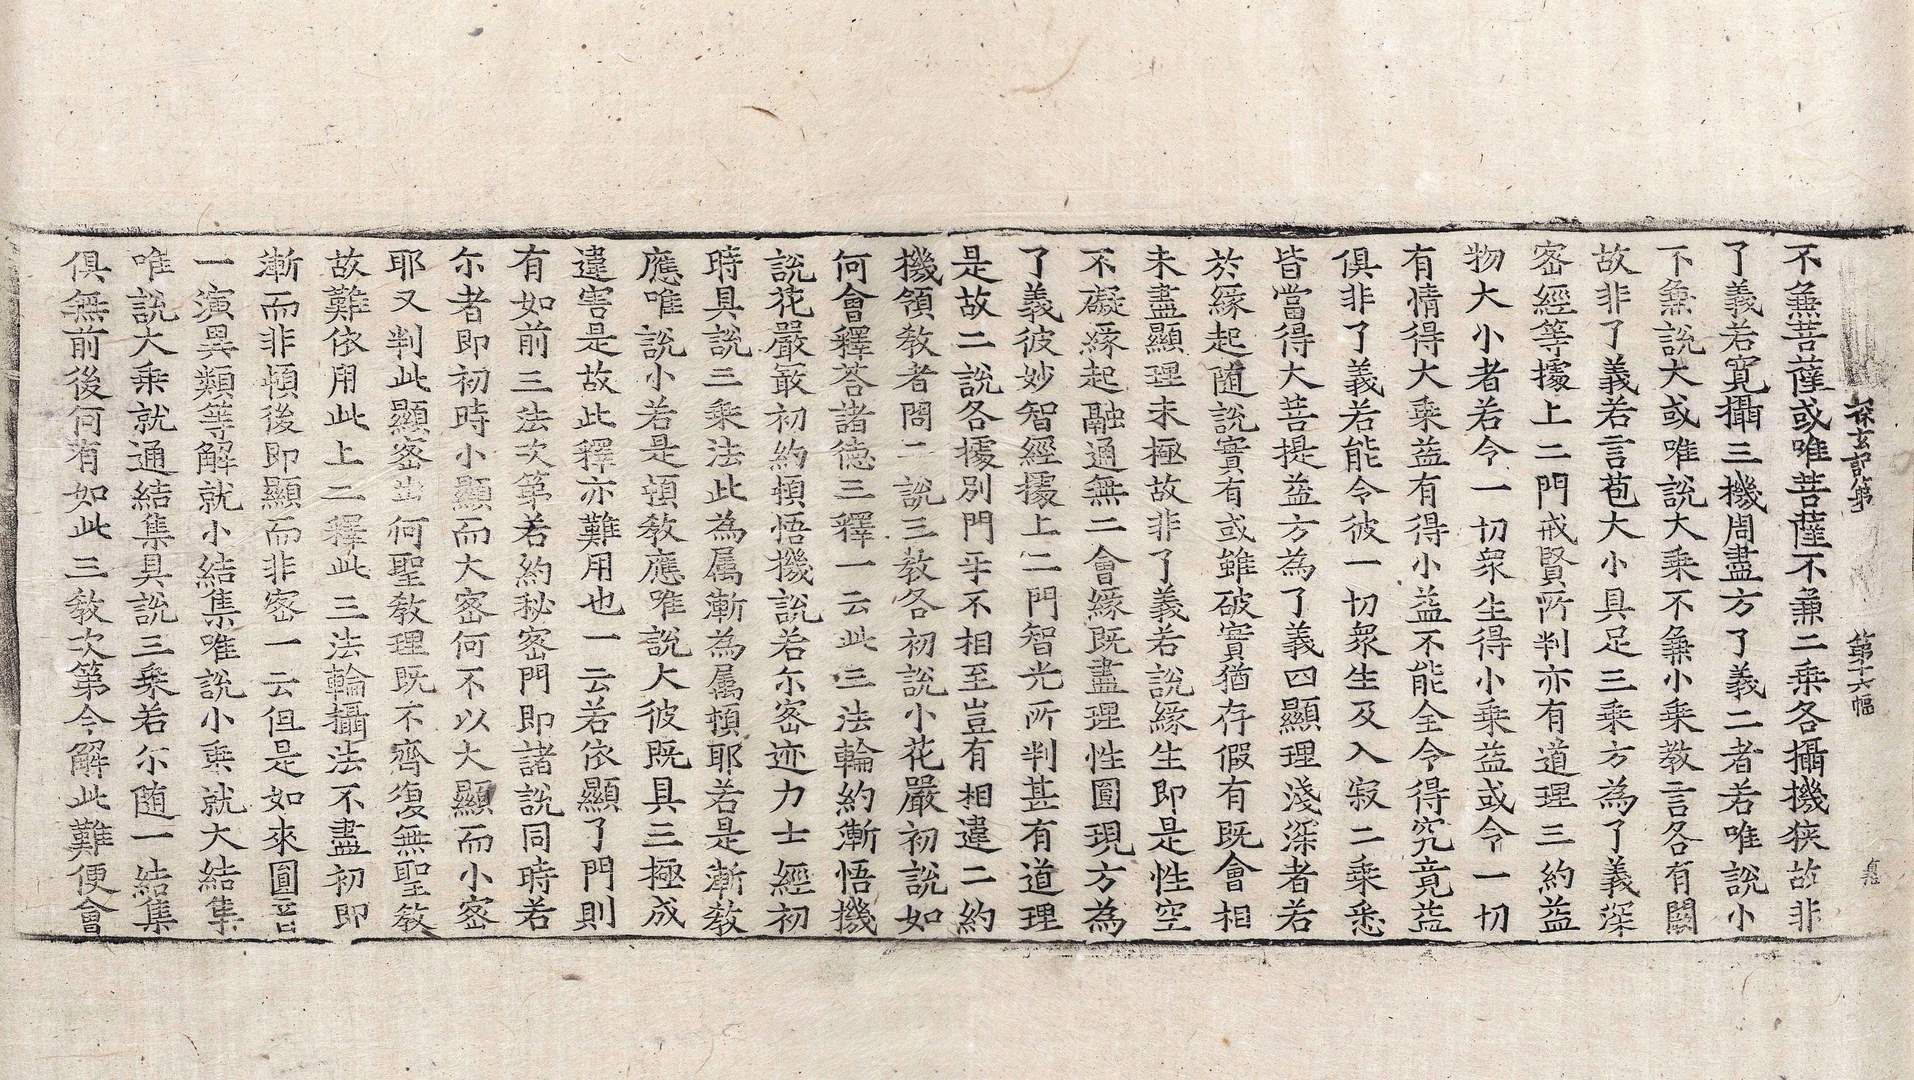 探玄記第 第十六幅
不兼菩薩或唯菩薩不兼二乗各攝機狹故非
了義若寬攝三機周盡方了義二者若唯說小
下兼說大或唯說大乗不兼小乗教言各有闕
故非了義若言苞大小具足三乗方為了義深
密經等據上二門戒賢所判亦有道理三約益
物大小者若令一切衆生得小乗益或令一切
有情得大乗益有得小益不能全令得究竟益
俱非了義若能令彼一切衆生及入寂二乗悉
皆當得大菩提益方為了義四顯理淺深者若
於緣起随說實有或雖破實猶存假有既會相
未盡顯理未極故非了義若說緣生即是性空
不礙緣起融通無二會緣既盡理性圓現方為
了義彼妙智經據上二門智光所判甚有道理
是故二說各據別門乎不相至豈有相違二約
機領教者問二說三教各初說小花嚴初說如
何會釋荅諸德三釋一云此三法輪約漸悟機
說花嚴㝡初約頓悟機說若尓密迹力士經初
時具說三乗法此為属漸為属頓耶若是漸教
應唯說小若是頓教應唯說大彼既具三極成
違害是故此釋亦難用也一云若依顯了門則
有如前三法次第若約秘密門即諸說同時若
尓者即初時小顯而大密何不以大顯而小密
耶又判此顯密出何聖教理既不齊復無聖教
故難依用此上二釋此三法輪攝法不盡初即
漸而非頓後即顯而非密一云但是如來圓音
一演異類等解就小結集唯說小乗就大結集
唯說大乗就通結集具說三乗若尓随一結集
俱無前後何有如此三教次第今解此難便會